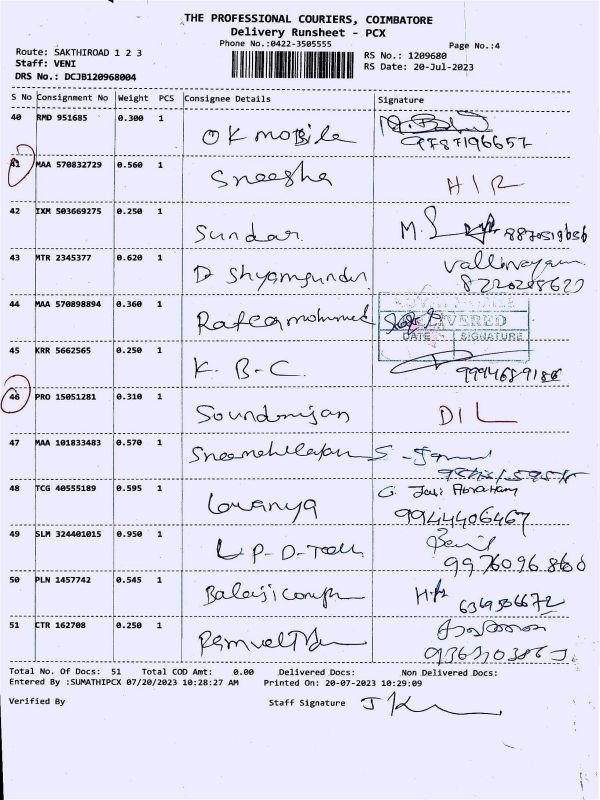 THE PROFESSIONAL COURIERS, COIMBATORE
Delivery Runsheet - PCX
Phone No.:0422-3505555
Page No.:4
Route: SAKTHIROAD 1 2 3
Staff: VENI
DRS No.: DCJB120968004
RS No.: 1209680
RS Date: 20-Jul-2023
S No Consignment No Weight PCS Consignee Details Signature
40 RMD 951685 0.300 1 OK mobile 9787196657
41 MAA 570832729 0.560 1 Sneesha
42 IXM 503669275 0.250 1 Sundar M.S
43 MTR 2345377 0.620 1 D Shyamsundar
44 MAA 570898894 0.360 1 DELIVERED
DATE SIGNATURE
45 KRR 5662565 0.250 1 K. B-C. 9994689186
46 PRO 15051281 0.310 1 DIL
47 MAA 101833483 0.570 1
48 TCG 40555189 0.595 1 Lavanya G. Jasi Abraham
9944406467
49 SLM 324401015 0.950 1 9976096860
50 PLN 1457742 0.545 1 Balaji comp
51 CTR 162708 0.250 1
Total No. Of Docs: 51 Total COD Amt: 0.00 Delivered Docs: Non Delivered Docs:
Entered By :SUMATHIPCX 07/20/2023 10:28:27 AM Printed On: 20-07-2023 10:29:09
Verified By Staff Signature